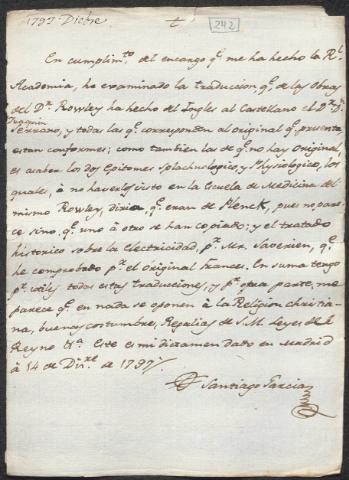 1797 Dicbre
242
En cumplim.to del encargo q.e me ha hecho la R.l
Academia, he examinado la traducion q.e de las obras
del D.r Rowley ha hecho del Ingles al Castellano el D.r D.n
Joaquin
Serrano, y todas las q.e corresponden al original q.e presenta
estan conformes; como tambien las de q.e no hay Original,
es a saber los dos Epitomes Splachnologico, y Physiologico, los
quales, à no haverlos visto en la Escuela de Medicina del
mismo Rowley, diria q.e eran de Plenck, pues no pare-
ce sino q.e uno à otro se han copiado; y el tratado
historico sobre la Electricidad, p.r Mr. Saverien, q.e
he comprobado p.r el original frances. En suma tengo
p.r utiles todas estas traducciones, y p.r otra parte, me
parece q.e en nada se oponen à la Religion christia-
na, buenas costumbre, Regalias de S. M. Leyes de el
Reyno &.a Este es mi dictamen dado en Madrid
à 14 de Dic.re de 1797.
Santiago Garcia